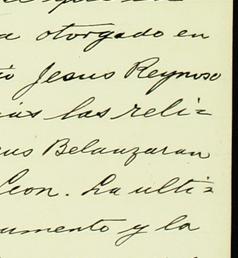 a otorgado en
Jesus Reynoso
las reli=
Belauzaran
Leon. La ulti=
umento y la